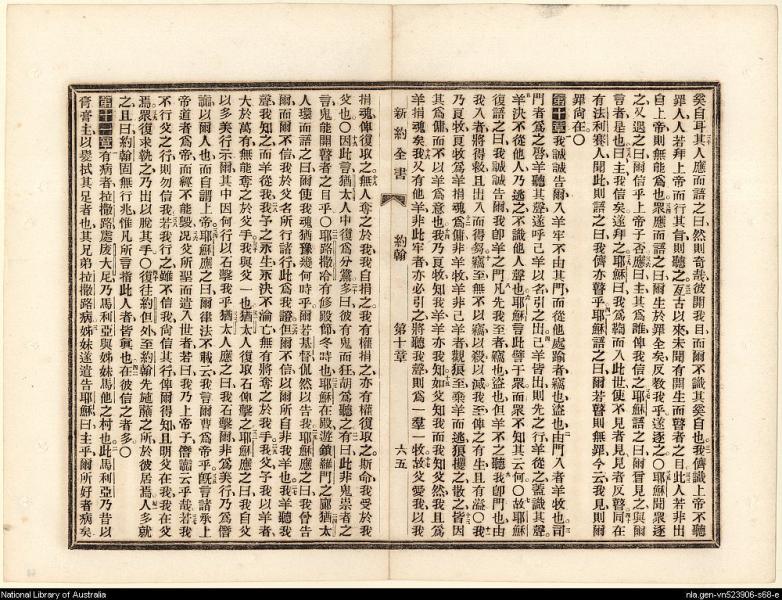 奚自耳其人應而語之曰然則奇哉彼開我目而爾不識其奚自也我儕識上帝不聽
罪人人若拜上帝而行其旨則聽之亙古以來未聞有開生而瞽者之目此人若非出
自上帝則無能爲也眾應而語之曰爾生於罪全矣反教我乎遂逐之〇耶穌聞眾逐
之又遇之曰爾信乎上帝子否應曰主其爲誰俾我信之耶穌語之曰爾曾見之與爾
言者是也曰主我信矣遂拜之耶穌曰我爲鞫而入此世使不見者見見者反瞽同在
有法利賽人聞此則語之曰我儕亦瞽乎耶穌語之曰爾若瞽則無罪今云我見則爾
罪尚在〇
第十章 我誠誠告爾入羊牢不由其門而從他處踰者竊也盜也由門入者羊牧也司
門者爲之啓羊聽其聲遂呼己羊以名引之出己羊皆出則先之行羊從之蓋識其聲
羊決不從他人乃逃之不識他人聲也耶穌言此譬于眾而眾不知其云何〇故耶穌
復語之曰我誠誠告爾我卽羊之門凡先我至者竊也盜也但羊不之聽我卽門也由
我入者將得救且出入而得芻竊至無不以竊以殺以滅我至俾之有生且有溢〇我
乃良牧良牧爲羊捐魂爲傭非羊牧羊非己羊者觀狼至棄羊而逃狼攫之散之皆因
其爲傭而不以羊爲意也我乃良牧知我羊羊亦我知如父知我而我知父然我且爲
羊捐魂矣我又有他羊非此牢者亦必引之將聽我聲則爲一羣一牧故父愛我以我
新約全書 約翰 第十章 六五
捐魂俾復取之無人奪之於我我自捐之我有權捐之亦有權復取之斯命我受於我
父也〇因此言猶太人中復爲分黨多曰彼有鬼而狂胡爲聽之有曰此非鬼祟者之
言鬼能開瞽者之目乎〇耶路撒冷有修殿節冬時也耶穌在殿遊鎖羅門之廊猶太
人環而語之曰爾使我魂猶豫幾何時乎爾若基督侃然以告我耶穌應之曰我曾告
爾而爾不信我於父名所行諸行此爲我證但爾不信以爾所自非我羊也我羊聽我
聲我知之而羊從我我予之永生永決不淪亡無有將奪之於我手我父予我以羊者
大於萬有無能奪之於父手我與父一也猶太人復取石俾擊之耶穌應之曰我自父
以多美行示爾其中因何行以石擊我乎猶太人應之曰我石擊爾非爲美行乃爲僭
誣以爾人也而自謂上帝耶穌應之曰爾律法不載云我言爾曹爲帝乎旣言諸承上
帝道者爲帝而經不能毀况父所聖而遣入世者若曰我乃上帝子僭誣云乎哉若我
不行父之行則勿信我若我行之雖不信我尚信其行俾爾得知且明父在我我在父
焉眾復求執之乃出以脫其手〇復往約但外至約翰先施蘸之所於彼居焉人多就
之且曰約翰固無行兆惟凡所言指此人者皆眞也在彼信之者多〇
第十一章 有病者拉撒路處庋大尼乃馬利亞與姊妹馬他之村也此馬利亞乃昔以
香膏膏主以髮拭其足者也其兄弟拉撒路病姊妹遂遣告耶穌曰主乎爾所好者病矣
National Library of Australia
nla.gen-vn523906-s68-e